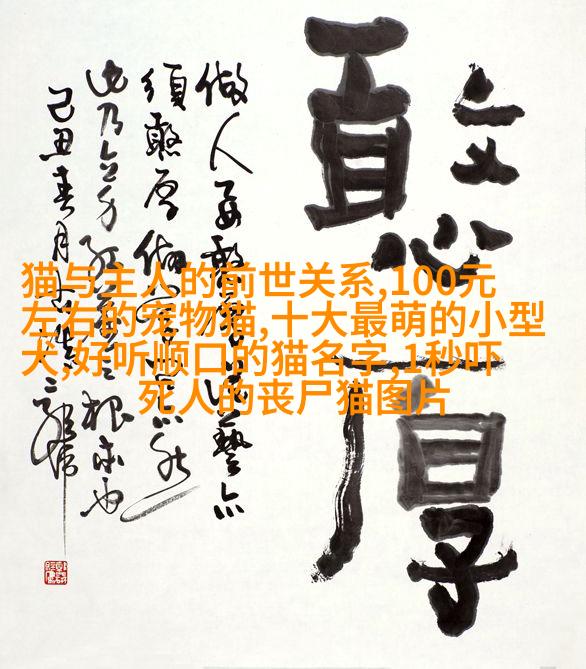 憨厚
做人要憨厚
须憨厚
此乃
根本也
己丑春月
猫与主人的前世关系,100元
左右的宠物猫,十大最萌的小型
犬,好听顺口的猫名字,1秒吓
死人的丧尸猫图片